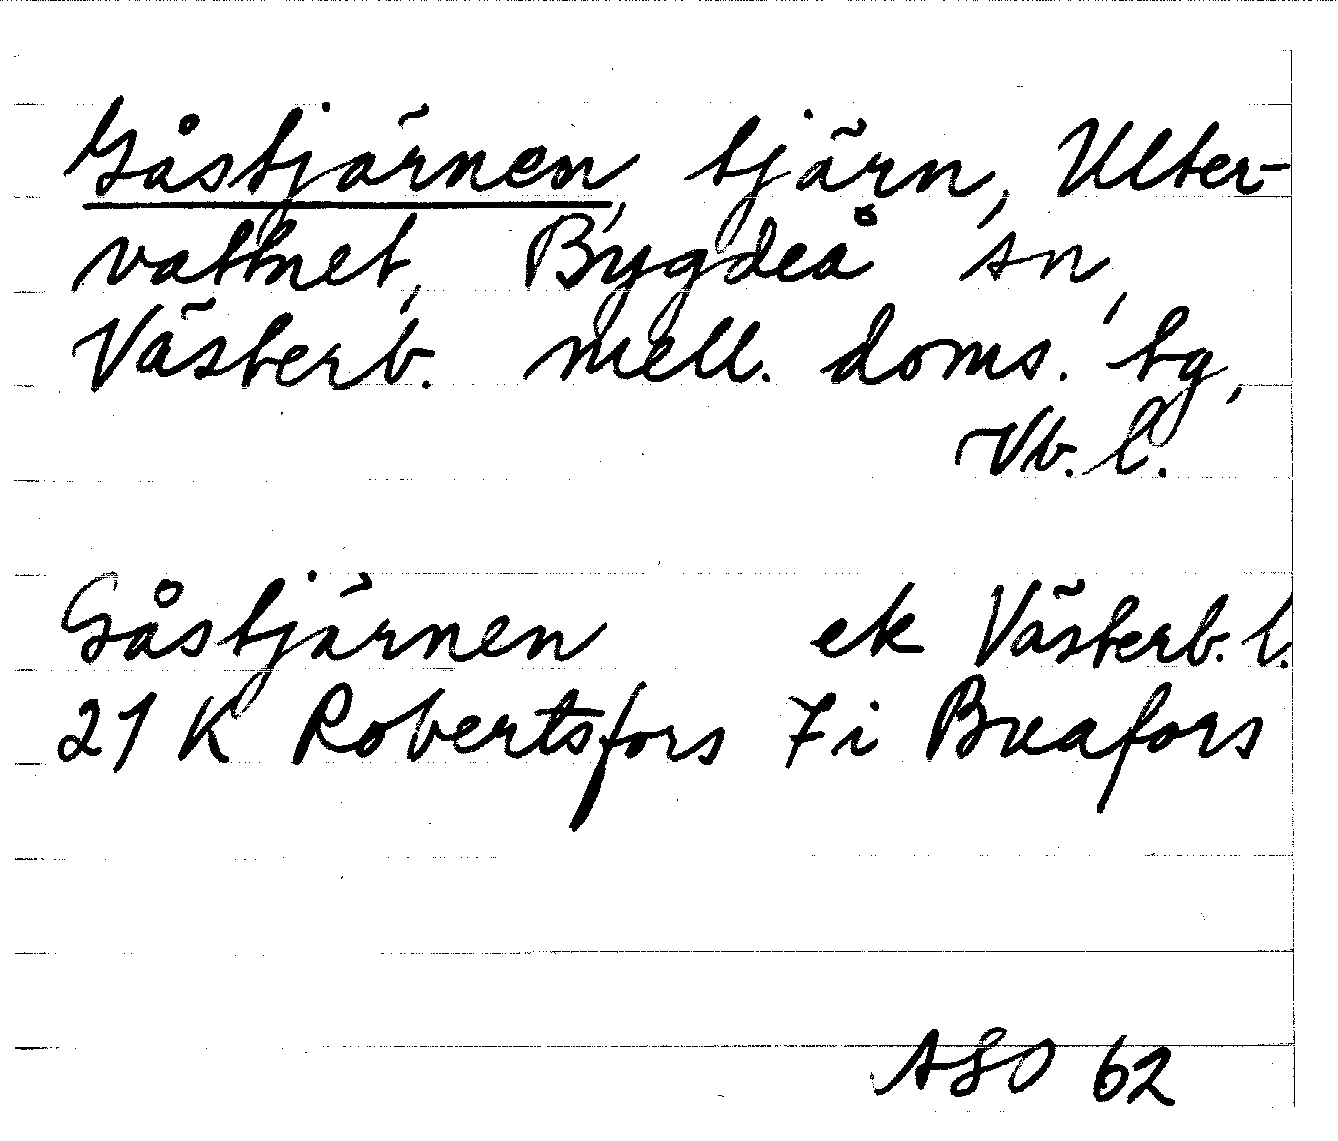 Gåstjärnen, tjärn, Ulter-
vattnet, Bygdeå sn,
Västerb. mell. doms. tg,
Vb. l.
Gåstjärnen ek Västerb. l.
21 K Robertsfors 7 i Breafors
ASO 62